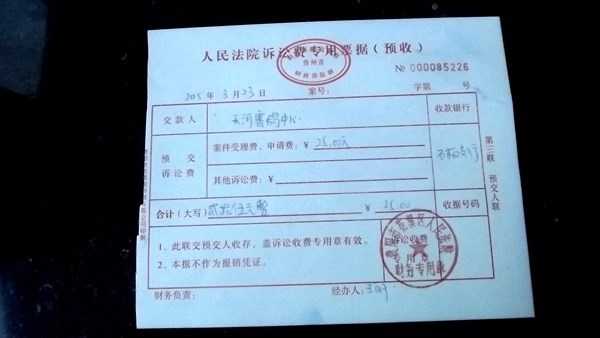 人民法院诉讼费专用票据（预收）
贵州省
№ 000085226
2015 年 3 月 23 日 案号： 字第 号
交款人 天河赛鸽中心 收款银行
预交诉讼费 案件受理费、申请费：¥ 25.00元
其他诉讼费：¥
合计（大写）贰拾伍元整 ¥ 25.00 收据号码
第三联 预交人联
1、此联交预交人收存，盖诉讼收费专用章有效。
2、本据不作为报销凭证。
人民法院
诉讼收费
专用章
财务专用章
财务负责： 经办人：